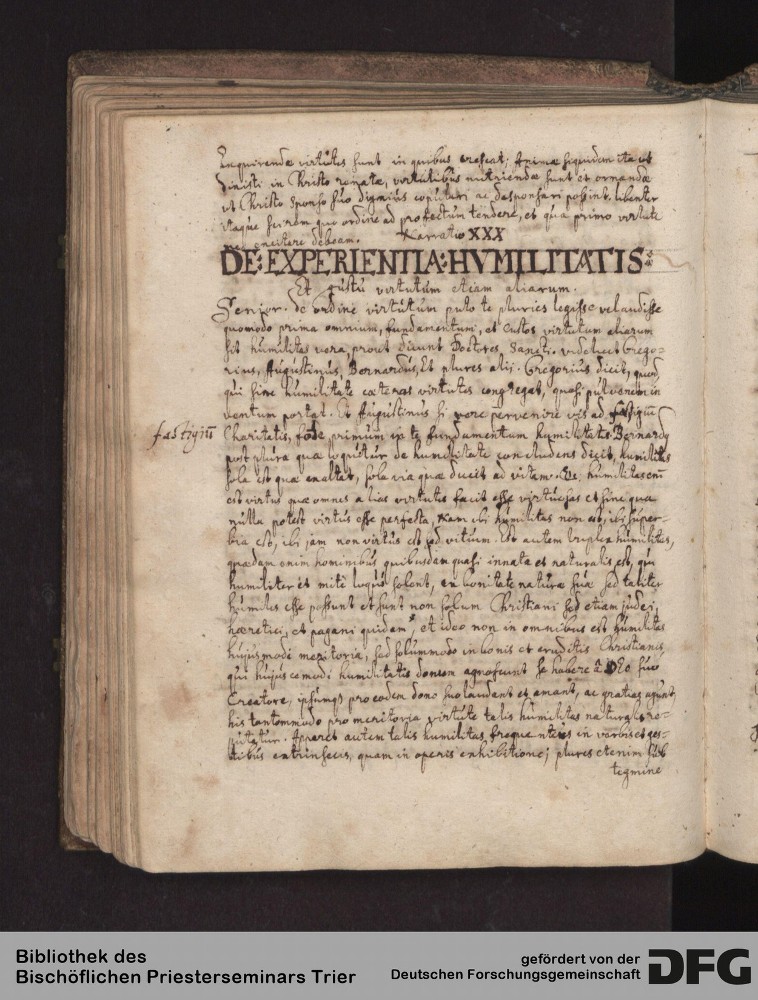 Inquirendæ virtutes sunt in quibus crescat; Animæ siquidem ita ut
dixisti in Christo renatæ, virtutibus nutriendæ sunt et ornandæ
ut Christo sponso suo dignius copulari ac desponsari possint. libenter
itaque scirem quo ordine ad profectum tendere, et qua primo virtute
me excitare debeam. Narratio XXX
DE: EXPERIENTIA: HVMILITATIS:
Et gustu virtutum etiam aliarum.
Senior. de ordine virtutum puto te pluries legisse vel audisse
quomodo prima omnium, fundamentum, et custos virtutum aliarum
sit humilitas vera, prout dicunt Doctores Sancti. videlicet Grego-
rius, Augustinus, Bernardus, Et plures alij. Gregorius dicit, quod,
qui sine humilitate cæteras virtutes congregat, quasi pulverem in
ventum portat. Et Augustinus si vere pervenire vis ad fastigiū
fastigiū
Charitatis, fode primum in te fundamentum humilitatis. Bernardus
post plura quæ loquitur de humilitate concludens dicit, humilitas
sola est quæ exaltat, sola via quæ ducit ad vitam. humilitas
est virtus quæ omnes alias virtutes facit esse virtutes et sine qua
nulla potest virtus esse perfecta, Nam ubi humilitas non est, ibi super-
bia est, ibi jam non virtus est sed vitium. Est autem triplex humilitas,
quædam enim hominibus quibusdam quasi innata et naturalis est, qui
humiliter et mite loqui solent, ex bonitate naturæ suæ sed taliter
humiles esse possunt et sunt non solum Christiani sed etiam judei,
hæretici, et pagani quidem, et ideo non in omnibus est humilitas
hujusmodi meritoria, sed solummodo in bonis et eruditis Christianis
qui hujuscemodi humilitatis donum agnoscunt se habere a DEo suo
Creatore, ipsumq; pro eodem dono suo laudant et amant, ac gratias agunt,
his tantommodo pro meritoria virtute talis humilitas naturalis re-
putatur. Apparet autem talis humilitas frequentius in verbis et ges-
tibus extrinsecis, quam in operis exhibitione; plures etenim sub
tegmine
Bibliothek des
Bischöflichen Priesterseminars Trier
gefördert von der
Deutschen Forschungsgemeinschaft
DFG